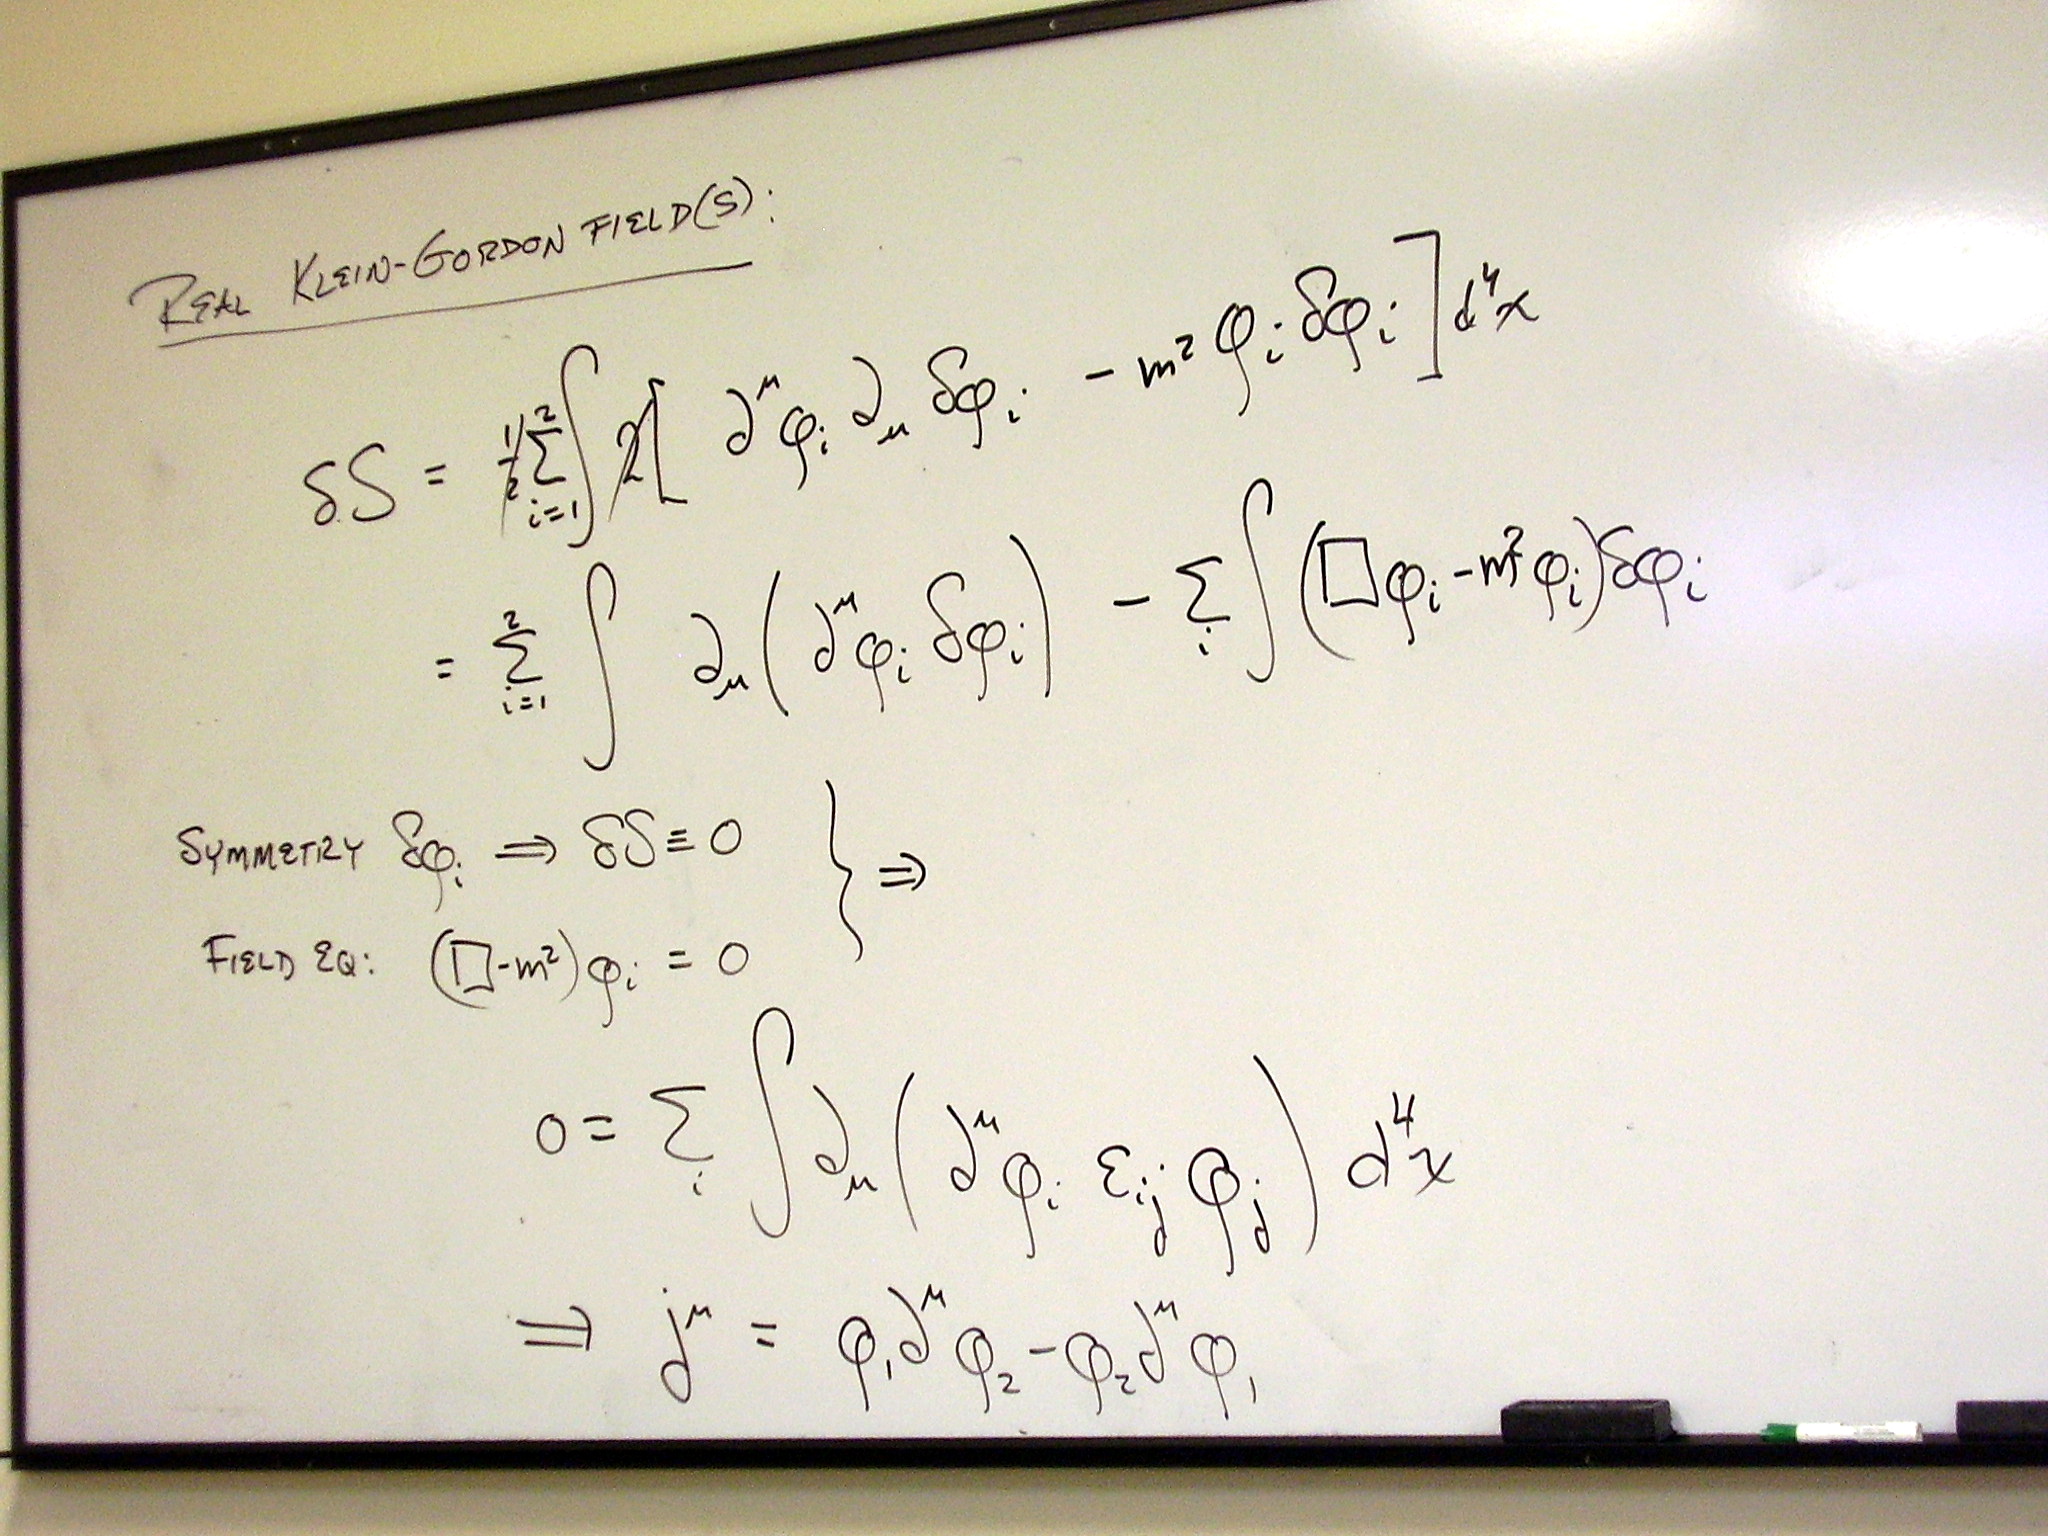 REAL KLEIN-GORDON FIELD(S):
δS = 1/2 Σ_{i=1}^{2} ∫ 2[ ∂^μ φ_i ∂_μ δφ_i - m² φ_i δφ_i ] d⁴x
= Σ_{i=1}^{2} ∫ ∂_μ ( ∂^μ φ_i δφ_i ) - Σ_i ∫ (□φ_i - m² φ_i) δφ_i
SYMMETRY δφ_i ⇒ δS ≡ 0 } ⇒
FIELD EQ: (□ - m²) φ_i = 0
0 = Σ_i ∫ ∂_μ ( ∂^μ φ_i ε_{ij} φ_j ) d⁴x
⇒ j^μ = φ_1 ∂^μ φ_2 - φ_2 ∂^μ φ_1